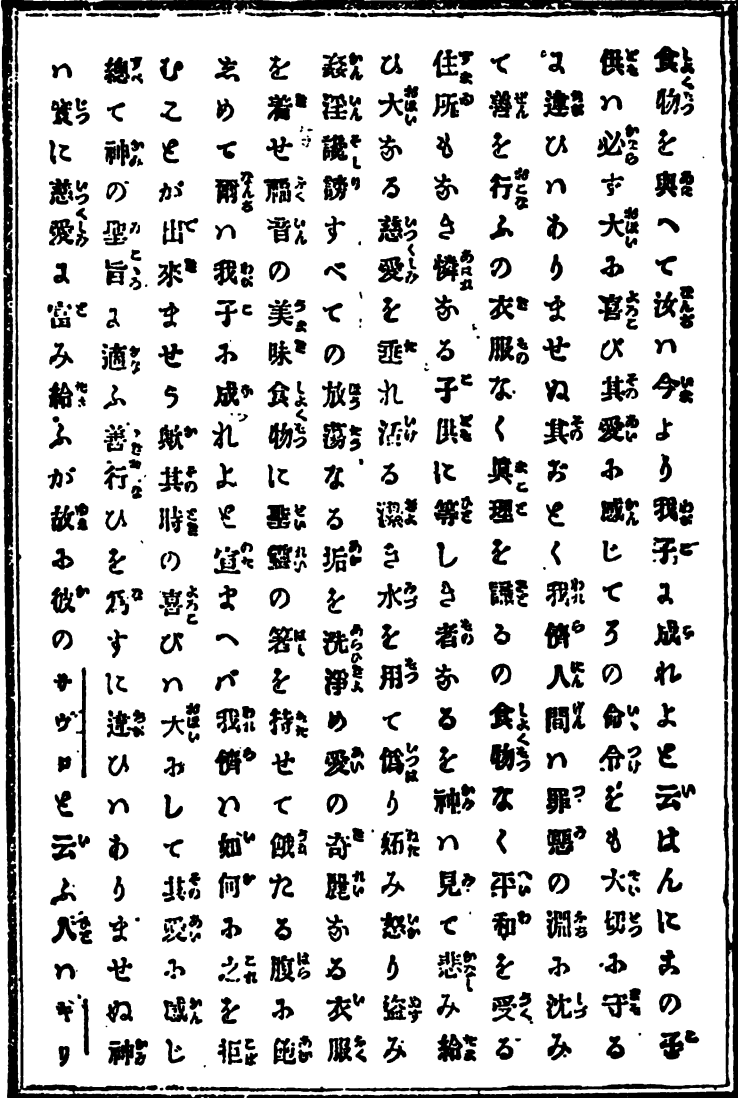 食物を與へて汝ハ今より我子に成れよと云はんにまの
供ハ必ず大に喜び其愛に感じてろの命令をも大切に守る
に違ひハありませぬ其おとく我儕人間ハ罪惡の淵に沈み
て善を行ふの衣服なく眞理を議るの食物なく平和を受る
住所もなき憐なる子供に等しき者なるを神ハ見て悲み給
ひ大なる慈愛を垂れ活る潔き水を用て僞り妬み怒り盜み
姦淫讒謗すべての放蕩なる垢を洗淨め愛の奇麗なる衣服
を着せ福音の美味食物に聖靈の箸を持せて餓たる腹に飽
しめて爾ハ我子に成れよと宣まへバ我儕ハ如何に之を拒
むことが出來ませう歟其時の喜びハ大にして其愛に感じ
總て神の聖旨に適ふ善行ひを爲すに違ひハありませぬ神
ハ實に慈愛に富み給ふが故に彼のサヴロと云ふ人ハギリ